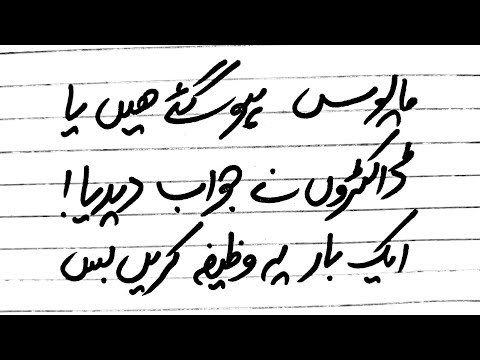 مایوس ہوگئے ھیں یا
ڈاکٹروں نے جواب دیدیا!
ایک بار یہ وظیفہ کریں بس